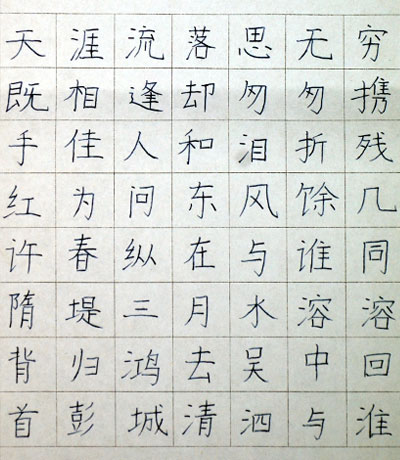 天涯流落思无穷
既相逢却匆匆携
手佳人和泪折残
红为问东风馀几
许春纵在与谁同
隋堤三月水溶溶
背归鸿去吴中回
首彭城清泗与淮